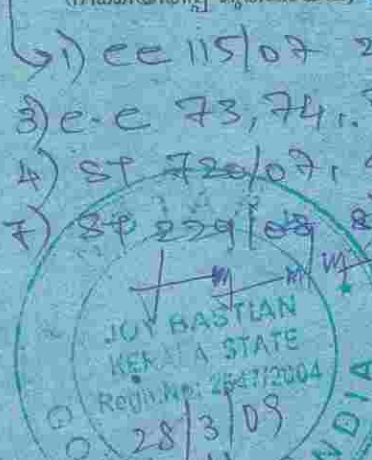 1) CC 115/07 2
3) C.C 73, 74,
4) ST 720/07,
7) ST 229/08 8
JOY BASTIAN
KERALA STATE
Regn.No: 2647/2004
28/3/09
INDIA